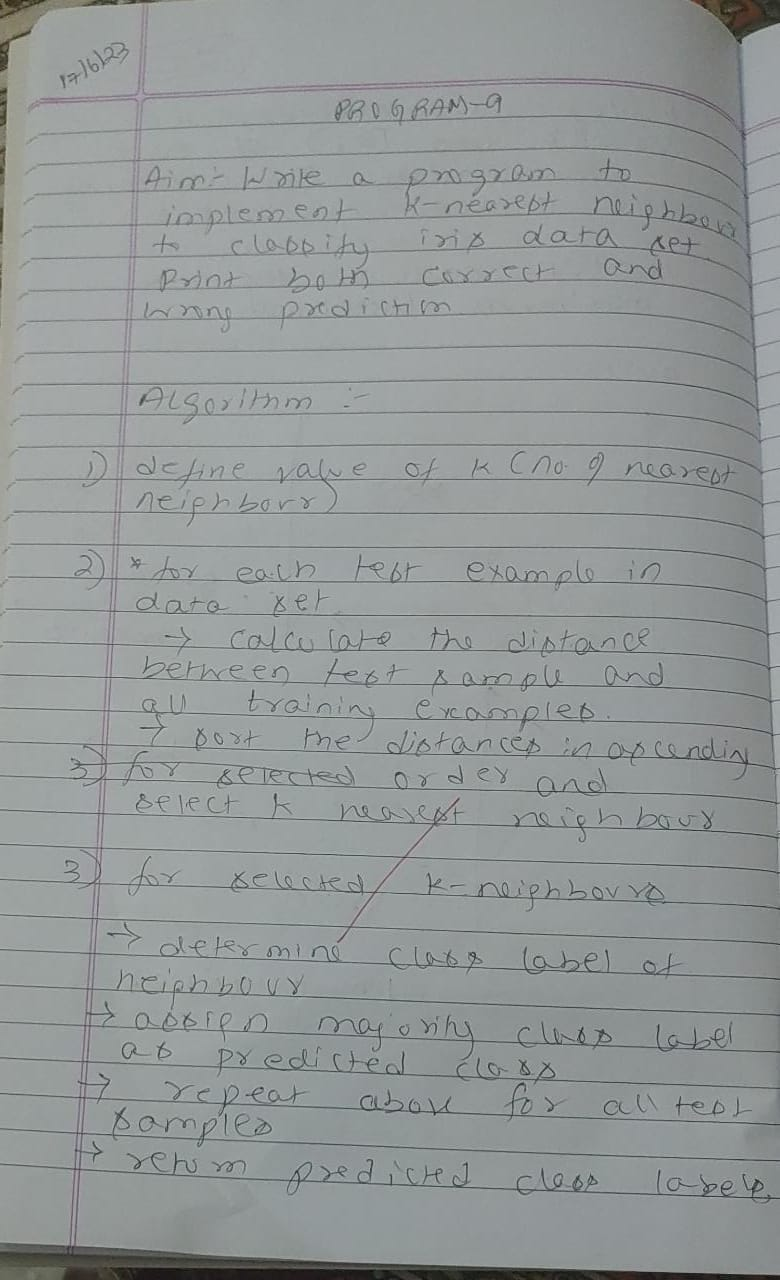 17/6/23
PROGRAM-9
Aim:- Write a program to
implement k-nearest neighbour
to classify iris data set.
Print both correct and
wrong prediction
Algorithm :-
1) define value of k (no. of nearest
neighbour)
2) * for each test example in
data set
→ calculate the distance
between test sample and
all training examples.
→ sort the distances in ascending
3) for selected order and
select k nearest neighbour
3) for selected k-neighbours
→ determine class label of
neighbour
→ assign majority class label
as predicted class
→ repeat above for all test
samples
→ return predicted class labels.